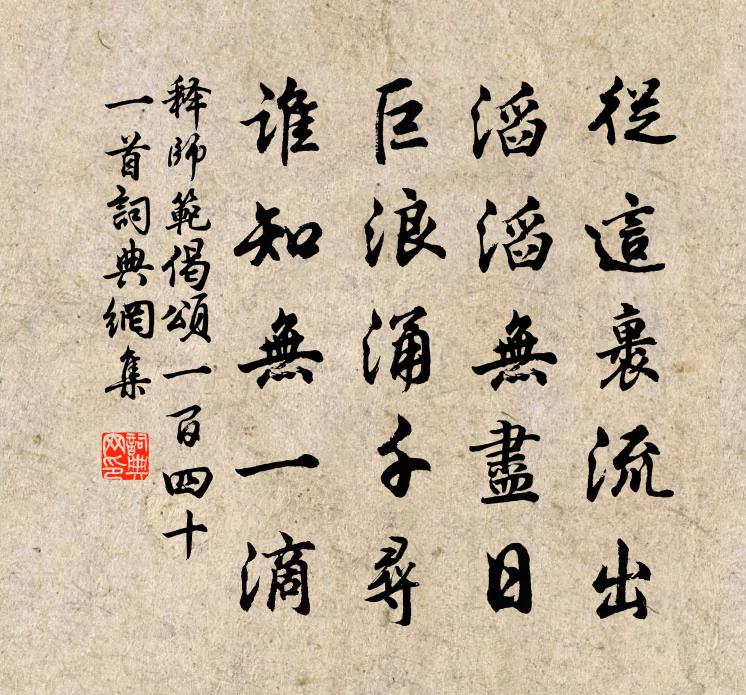 從這裹流出
滔滔無盡日
巨浪涌千尋
誰知無一滴
释師範偈頌一百四十
一首詞典網集
詞典网印